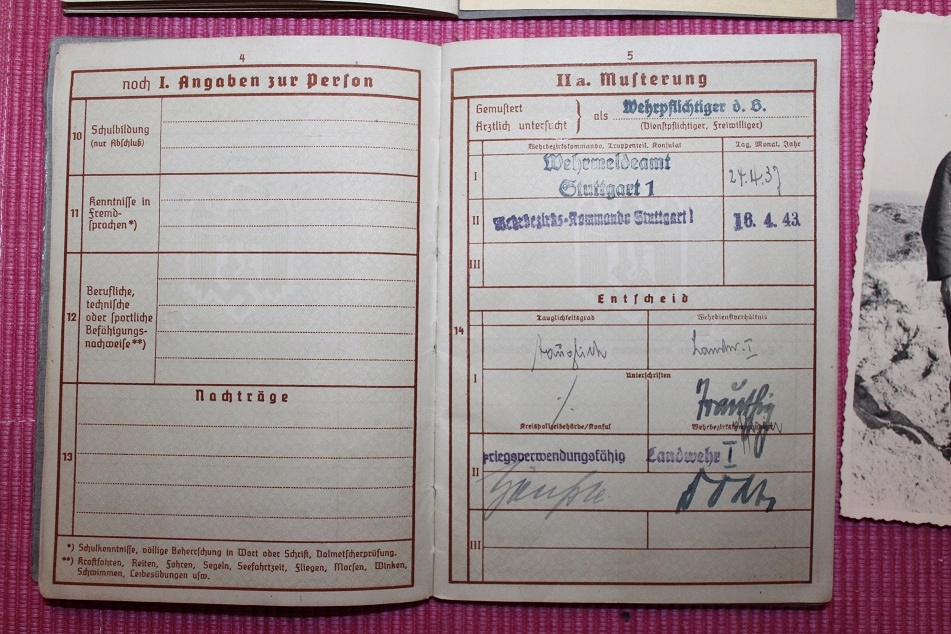 4
noch I. Angaben zur Person
10
Schulbildung
(nur Abschluß)
11
Kenntnisse in
Fremd-
sprachen*)
12
Berufliche,
technische
oder sportliche
Befähigungs-
nachweise**)
Nachträge
13
*) Schulkenntnisse, völlige Beherrschung in Wort oder Schrift, Dolmetscherprüfung.
**) Kraftfahren, Reiten, Fahren, Segeln, Seefahrtzeit, Fliegen, Morsen, Winken,
Schwimmen, Leibesübungen usw.
5
II a. Musterung
Gemustert
Ärztlich untersucht } als Wehrpflichtiger d. B.
(Dienstpflichtiger, Freiwilliger)
Wehrbezirkskommando, Truppenteil, Konsulat Tag, Monat, Jahr
I Wehrmeldeamt
Stuttgart 1 27.4.37
II Wehrbezirks-Kommando Stuttgart I 16. 4. 43.
III
Entscheid
14
Tauglichkeitsgrad Wehrdienstverhältnis
tauglich Landw. I
I Unterschriften
Kreispolizeibehörde/Konsul Wehrbezirkskommandeur
kriegsverwendungsfähig Landwehr I
II
III